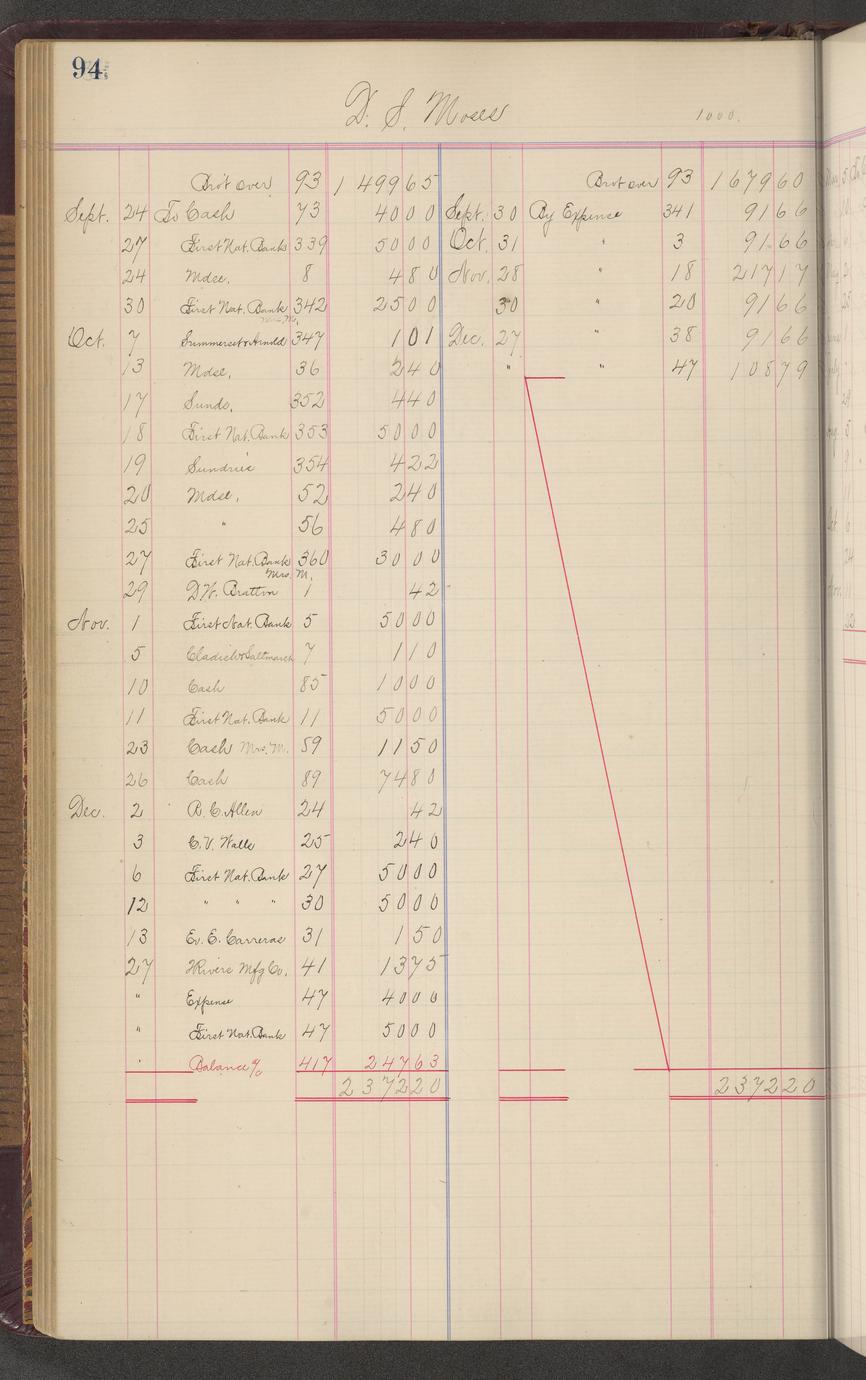 94
D. S. Moses 1000.
Bro't over 93 1 499 65 Brot over 93 1 679 60
Sept. 24 To Cash 73 40 00 Sept. 30 By Expense 341 91 66
27 First Nat. Bank 339 50 00 Oct. 31 " 3 91 66
24 Mdse. 8 4 80 Nov. 28 " 18 217 17
30 First Nat. Bank 342 25 00 30 " 20 91 66
Mrs. M.
Oct. 7 Summerset & Arnold 347 1 01 Dec. 27 " 38 91 66
13 Mdse. 36 2 40 " " 47 108 79
17 Sunds. 352 4 40
18 First Nat. Bank 353 50 00
19 Sundries 354 4 22
20 Mdse. 52 2 40
25 " 56 4 80
27 First Nat. Bank 360 30 00
Mrs. M.
29 D.W. Bratton 1 42
Nov. 1 First Nat. Bank 5 50 00
5 7 1 10
10 Cash 85 10 00
11 First Nat. Bank 11 50 00
23 Cash Mrs. M. 59 11 50
26 Cash 89 74 80
Dec. 2 B. C. Allen 24 42
3 C. V. Walls 25 2 40
6 First Nat. Bank 27 50 00
12 " " " 30 50 00
13 Ev. E. Carreras 31 1 50
27 3Rivers Mfg Co. 41 13 75
" Expense 47 40 00
" First Nat. Bank 47 50 00
" Balance % 417 247 63
2 372 20 2 372 20